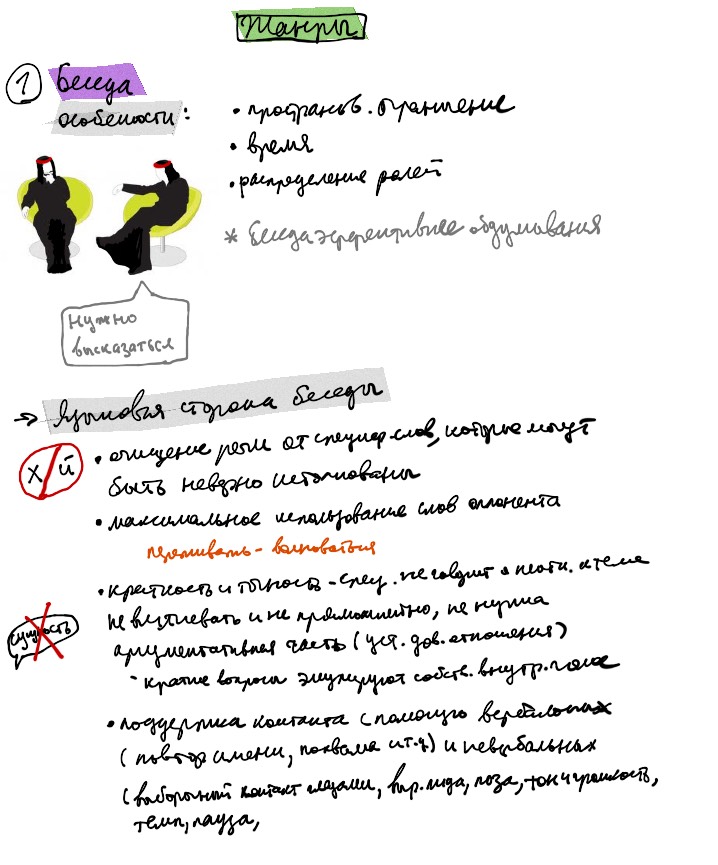 Жанры
1 Беседа
особености:
• пространств. ограничение
• время
• распределение ролей
* Беседа эффективнее обдумывания
нужно
высказаться
→ Языковая сторона беседы
х/й
• очищение речи от специф. слов, которые могут
быть неверно истолкованы
• максимальное использование слов оппонента
переживать - волноваться
• краткость и точность - спец. не говорит о
не и не прямолинейно, не нужна
аргументативная часть (уст. дов. отношения)
краткие вопросы собств. внутр. поле
сущность
• поддержка контакта с помощью вербальных
(повтор имени, похвала и т.д) и невербальных
(выборочный контакт глазами, выр. лица, поза, тон, громкость,
темп, пауза,